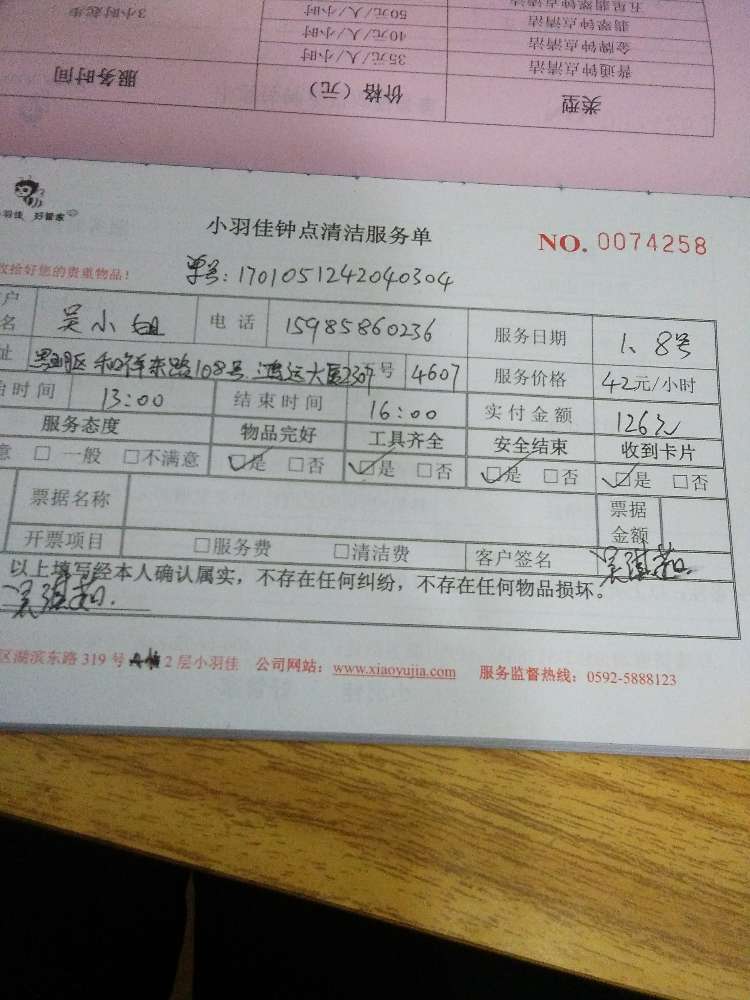 五星翡翠钟点清洁 50元/人/小时 3小时起步
翡翠钟点清洁
金牌钟点清洁 40元/人/小时
普通钟点清洁 35元/人/小时
类型 价格(元) 服务时间
小羽佳 好管家
小羽佳钟点清洁服务单 NO. 0074258
收拾好您的贵重物品! 单号:1701051242040304
户名 吴小姐 电话 15985860236 服务日期 1、8号
址 和祥东路108号 鸿运大厦2307 工号 4607 服务价格 42元/小时
始时间 13:00 结束时间 16:00 实付金额 126元
服务态度 物品完好 工具齐全 安全结束 收到卡片
意 □一般 □不满意 ☑是 □否 ☑是 □否 ☑是 □否 ☑是 □否
票据名称 票据金额
开票项目 □服务费 □清洁费 客户签名
以上填写经本人确认属实,不存在任何纠纷,不存在任何物品损坏。
区湖滨东路 319 号 2 层小羽佳 公司网站:www.xiaoyujia.com 服务监督热线:0592-5888123